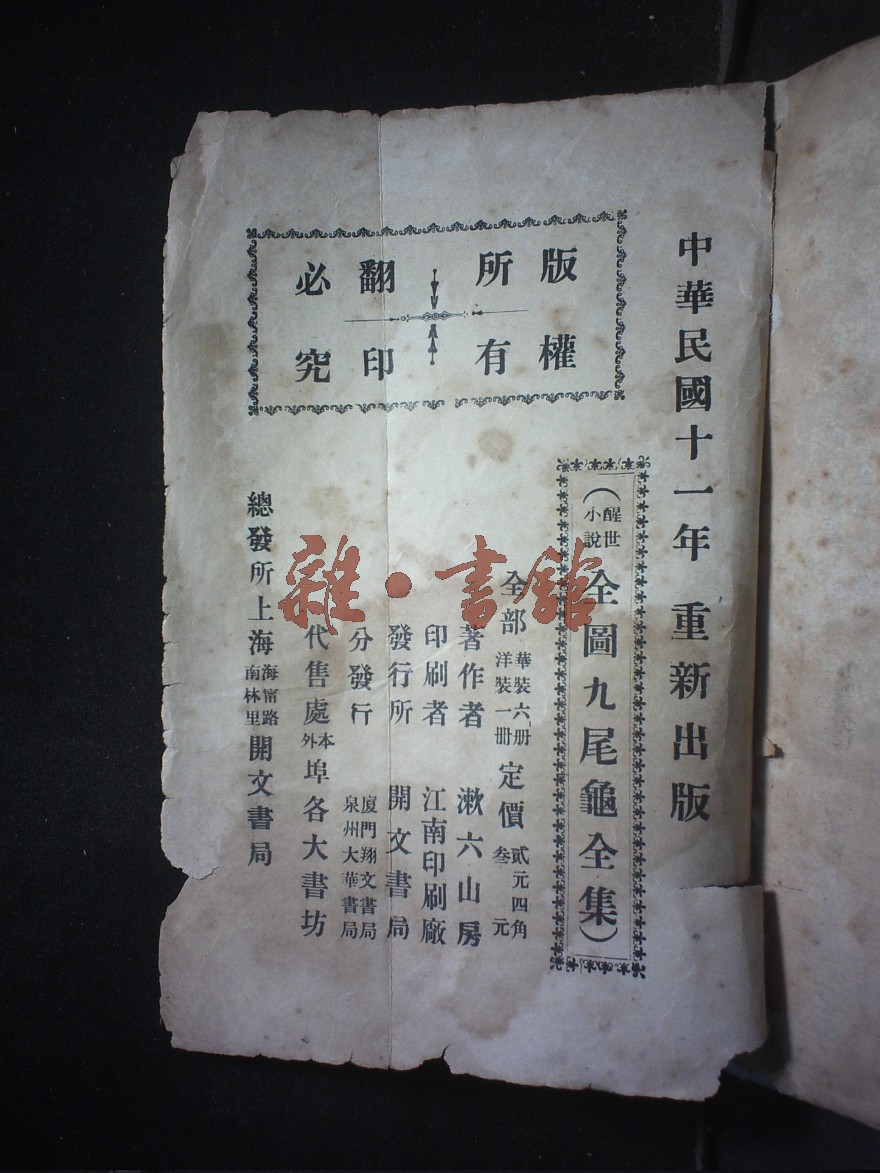 中華民國十一年 重新出版
版權所有
翻印必究
（醒世小說 全圖九尾龜全集）
全部 華裝六冊 洋裝一冊 定價 貳元四角 叁元
著作者 漱六山房
印刷者 江南印刷廠
發行所 開文書局
分發行 廈門翔文書局 泉州大華書局
代售處 本外埠各大書坊
總發所上海 海甯路 南林里 開文書局
雜·書館